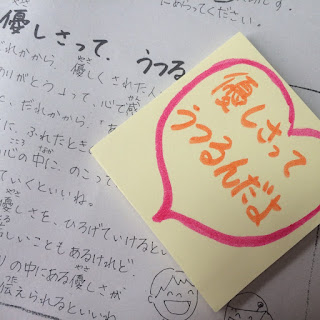 にあらってください。
優しさって、うつる
だれかから、優しくされた人
ありがとう」って、心で感
、だれかから、「あ
に、ふれたとき
心の中に、のこって
ていくといいね。
優しさを、ひろげていけると
しいこともあるけれど、
りの中にある優しさが
伝えられるといいね
優しさって
うつるんだよ